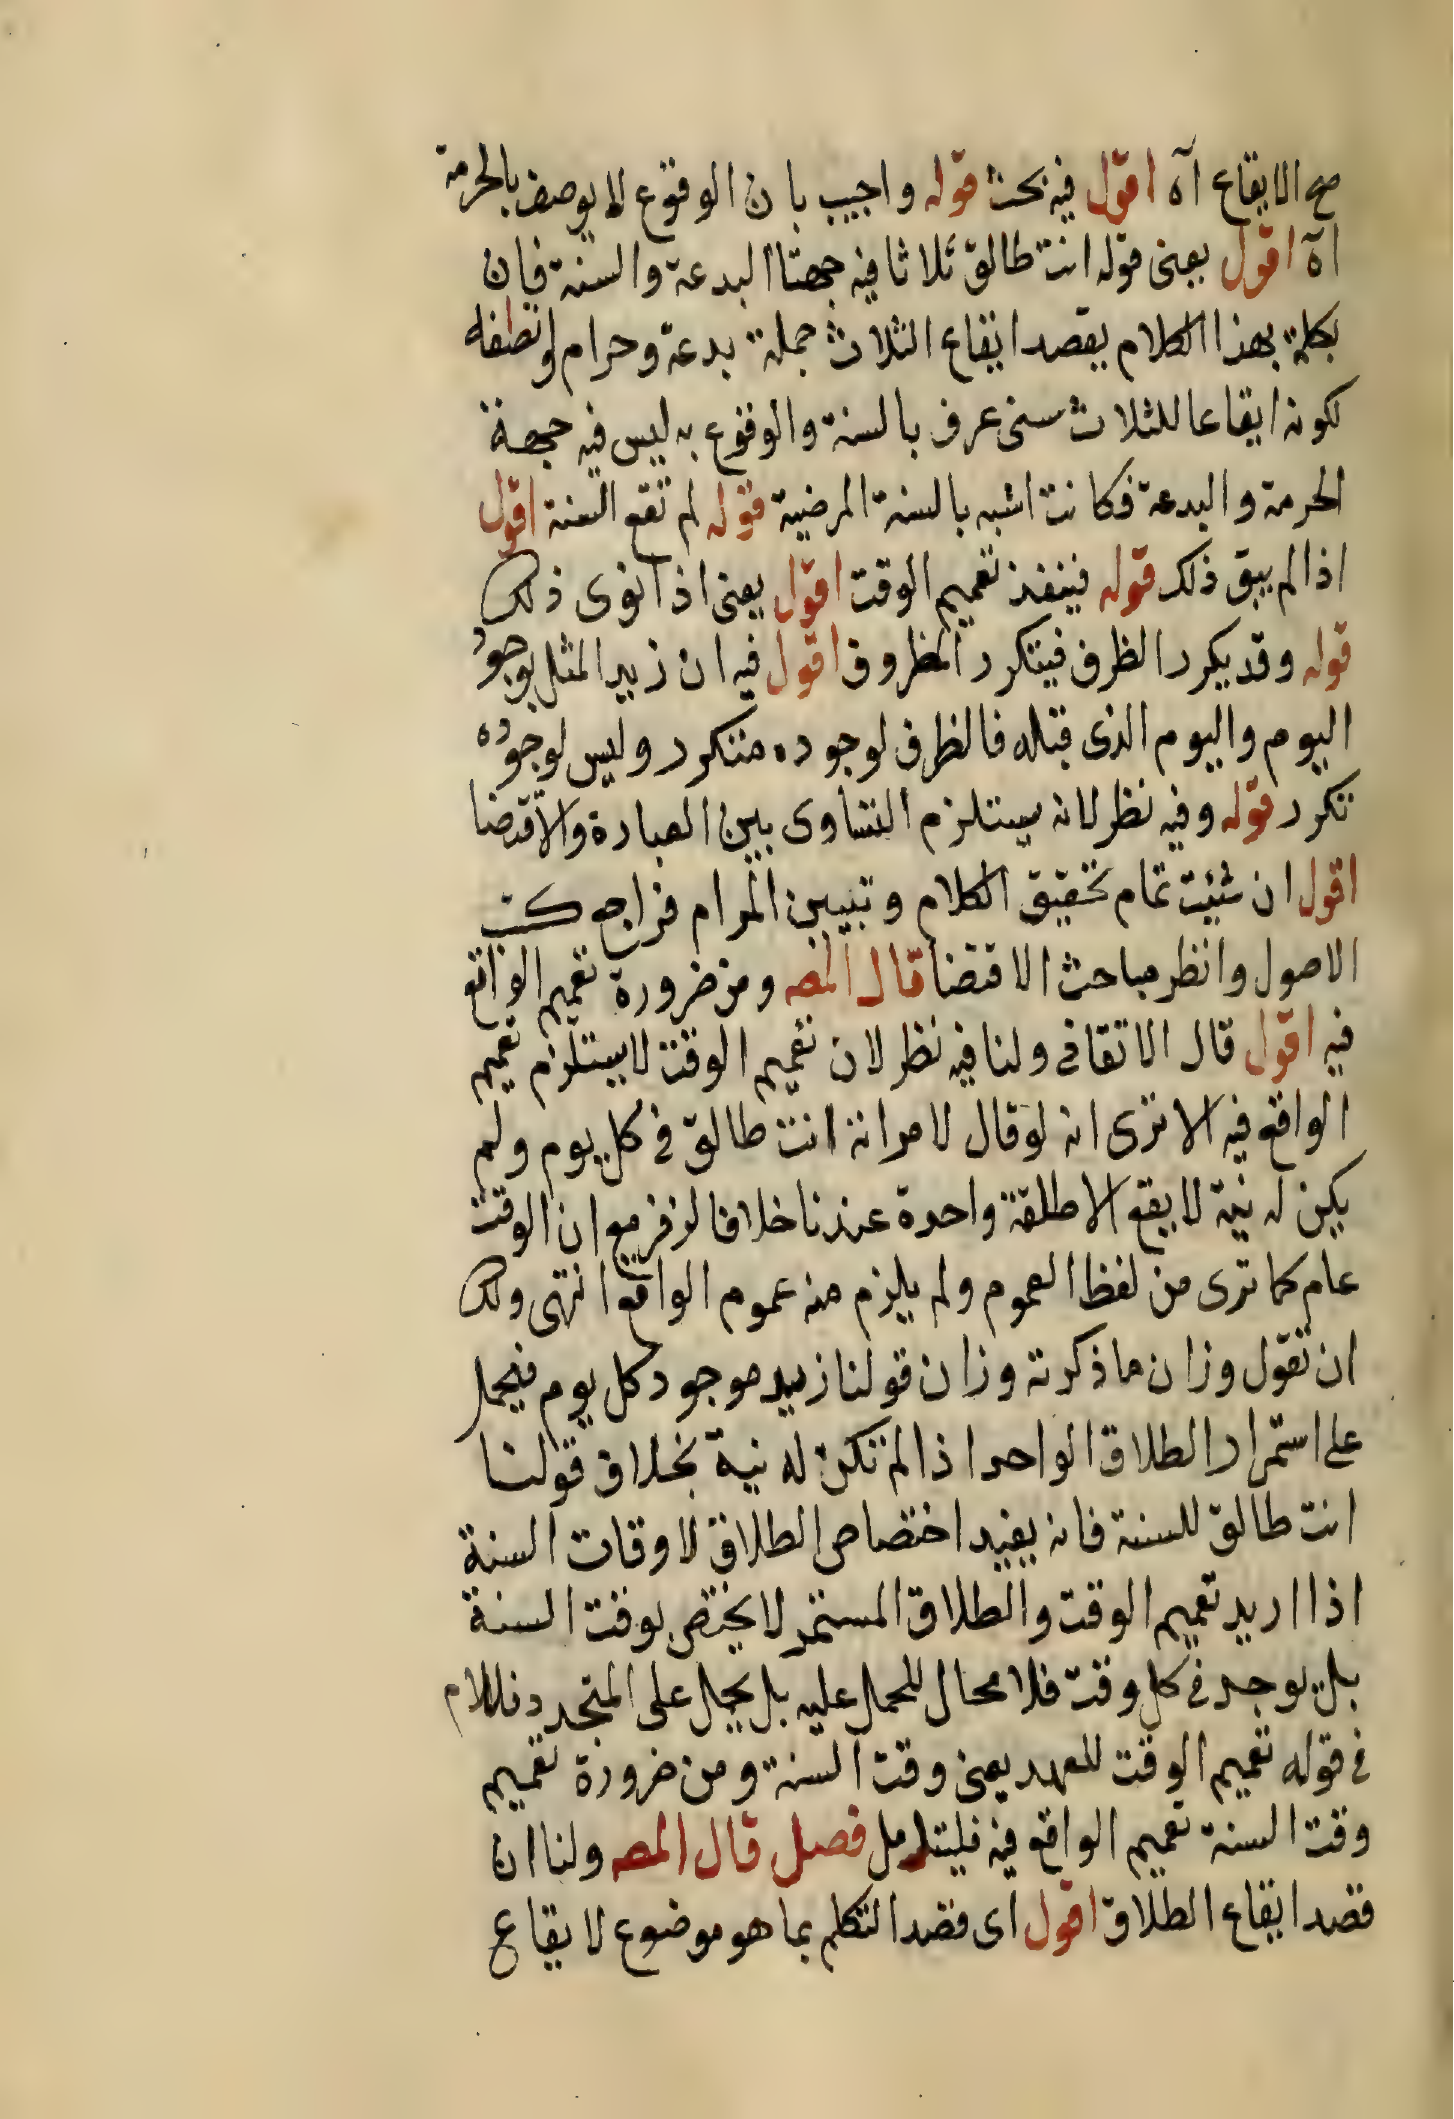 صح الايقاع اه اقول فيه بحث قوله واجيب بان الوقوع لا يوصف بالحرمة
اه اقول يعنى قوله انت طالق ثلاثا فيه جهتا البدعة والسنة فان
تكلمه بهذا الكلام بقصد ايقاع الثلاث جملة بدعة وحرام
لكونه ايقاعا للثلاث سنى عرف بالسنة والوقوع به ليس فيه جهة
الحرمة والبدعة فكانت اشبه بالسنة المرضية قوله لم تقع السنة اقول
اذا لم يبق ذلك قوله فينفذ تعميم الوقت اقول يعنى اذا نوى ذلك
قوله وقد يكرر الظرف فيتكرر المظروف اقول فيه ان زيدا لمثل بوجود
اليوم واليوم الذى قبله فالظرف لوجوده متكرر وليس لوجوده
تكرر قوله وفيه نظر لانه يستلزم التساوى بين العبارة والاقتضا
اقول ان شئت تمام تحقيق الكلام وتبيين المرام فراجع كتب
الاصول وانظر مباحث الاقتضا قال المصـ ومن ضرورة تعميم الواقع
فيه اقول قال الاتقانى ولنا فيه نظر لان تعميم الوقت لا يستلزم تعميم
الواقع فيه الا ترى انه لو قال لامراته انت طالق فى كل يوم ولم
يكن له نية لا يقع الا طلقة واحدة عندنا خلافا لزفر مع ان الوقت
عام كما ترى من لفظ العموم ولم يلزم منه عموم الواقع انتهى ولك
ان تقول وزان ما ذكرته وزان قولنا زيد موجود كل يوم فيحمل
على استمرار الطلاق الواحد اذا لم تكن له نية بخلاف قولنا
انت طالق للسنة فانه يفيد اختصاص الطلاق لاوقات السنة
اذا اريد تعميم الوقت والطلاق المستمر لا يختص بوقت السنة
بل يوجد فى كل وقت فلا محال للحمل عليه بل يحمل على المتجدد فاللام
فى قوله تعميم الوقت للعهد يعنى وقت السنة ومن ضرورة تعميم
وقت السنة تعميم الواقع فيه فليتامل فصل قال المصـ ولنا ان
قصد ايقاع الطلاق اقول اى قصد التكلم بما هو موضوع لايقاع